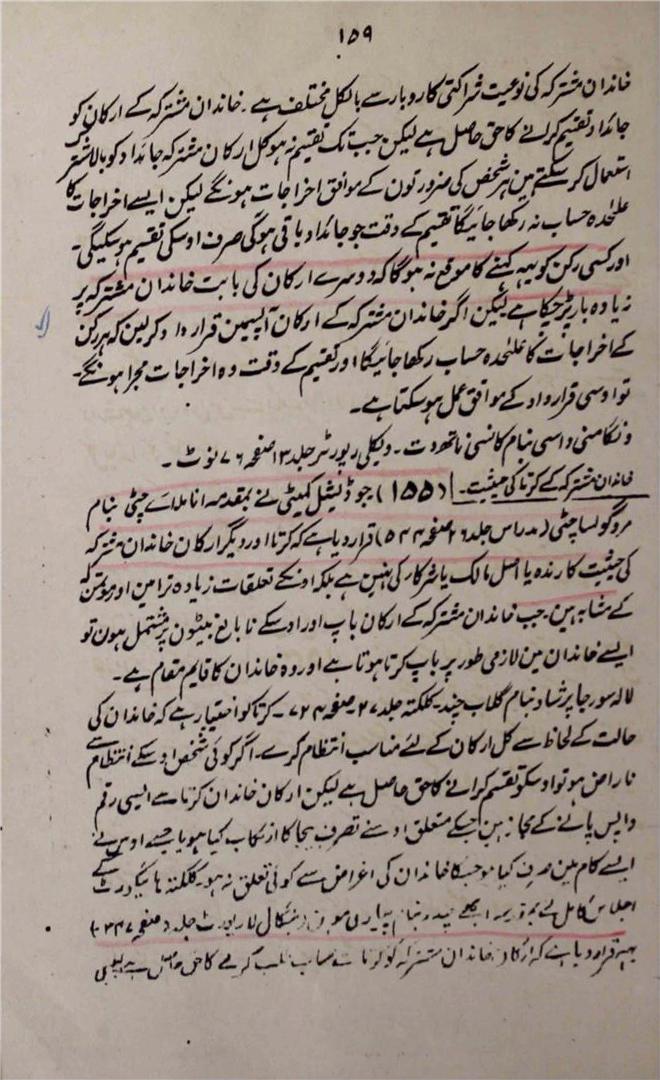 ۱۵۹
خاندان مشترکہ کی نوعیت شراکتی کاروبار سے بالکل مختلف ہے ۔ خاندان مشترکہ کے ارکان کو
جائداد تقسیم کرانے کا حق حاصل ہے لیکن جب تک تقسیم نہ ہو کل ارکان مشترکہ جائداد کو بالاشتراک
استعمال کر سکتے ہین ہر شخص کی ضرورتون کے موافق اخراجات ہونگے لیکن ایسے اخراجات کا
علٰحدہ حساب نہ رکھا جائیگا تقسیم کے وقت جو جائداد باقی ہوگی صرف اوسکی تقسیم ہو سکیگی ۔
اور کسی رکن کو یہہ کہنے کا موقع نہ ہوگا کہ دوسرے ارکان کی بابت خاندان مشترکہ پر
زیادہ بار پڑ چکا ہے لیکن اگر خاندان مشترکہ کے ارکان آپسمین قرار داد کرلین کہ ہر رکن
کے اخراجات کا علٰحدہ حساب رکھا جائیگا اور تقسیم کے وقت وہ اخراجات مجرا ہونگے ۔
تو اوسی قرار داد کے موافق عمل ہو سکتا ہے ۔
ونگامنی داسی بنام کانسی ناتھ دت ۔ ویکلی رپورٹر جلد ۱۳ صفحہ ۷۶ نوٹ ۔
خاندان مشترکہ کے کرتا کی حیثیت ۔ (۱۵۵) جوڈیشل کمیٹی نے بمقدمہ انا ملاے چٹی بنام
مروگولسا چٹی (مدراس جلد ۲۶ صفحہ ۵۴۴) قرار دیا ہے کہ کرتا اور دیگر ارکان خاندان مشترکہ
کی حیثیت کارندہ یا اصل مالک یا شرکار کی نہین ہے بلکہ اونکے تعلقات زیادہ تر امین اور موتمن لہ
کے مشابہ ہین ۔ جب خاندان مشترکہ کے ارکان باپ اور اوسکے نابالغ بیٹون پر مشتمل ہون تو
ایسے خاندان مین لازمی طور پر باپ کرتا ہوتا ہے اور وہ خاندان کا قایم مقام ہے ۔
لالہ سورجا پرشاد بنام گلاب چند ۔ کلکتہ جلد ۲۷ صفحہ ۷۲۴ ۔ کرتا کو اختیار ہے کہ خاندان کی
حالت کے لحاظ سے کل ارکان کے لئے مناسب انتظام کرے ۔ اگر کوئی شخص اوسکے انتظام سے
ناراض ہو تو اوسکو تقسیم کرانے کا حق حاصل ہے لیکن ارکان خاندان کرتا سے ایسی رقم
واپس پانے کے مجاز ہین جسکے متعلق اوسنے تصرف بیجا کا ارتکاب کیا ہو یا جسے اوس نے
ایسے کام مین صرف کیا ہو جسکا خاندان کی اغراض سے کوئی تعلق نہ ہو ۔ کلکتہ ہائیکورٹ کے
اجلاس کامل نے بمقدمہ ابھے چندر بنام پیاری موہن (بنگال لا رپورٹ جلد ۵ صفحہ ۳۴۷)
یہہ قرار دیا ہے کہ ارکان خاندان مشترکہ کو کرتا سے حساب طلب کرنے کا حق حاصل ہے